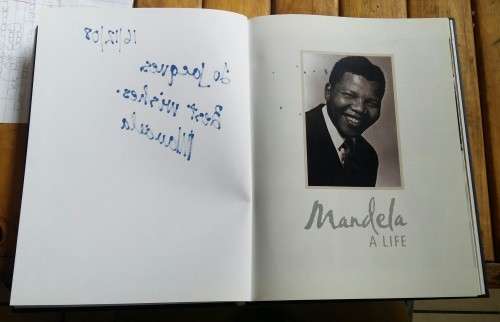 16/12/08
to Jacques
Best wishes.
Mandela
Mandela
A LIFE